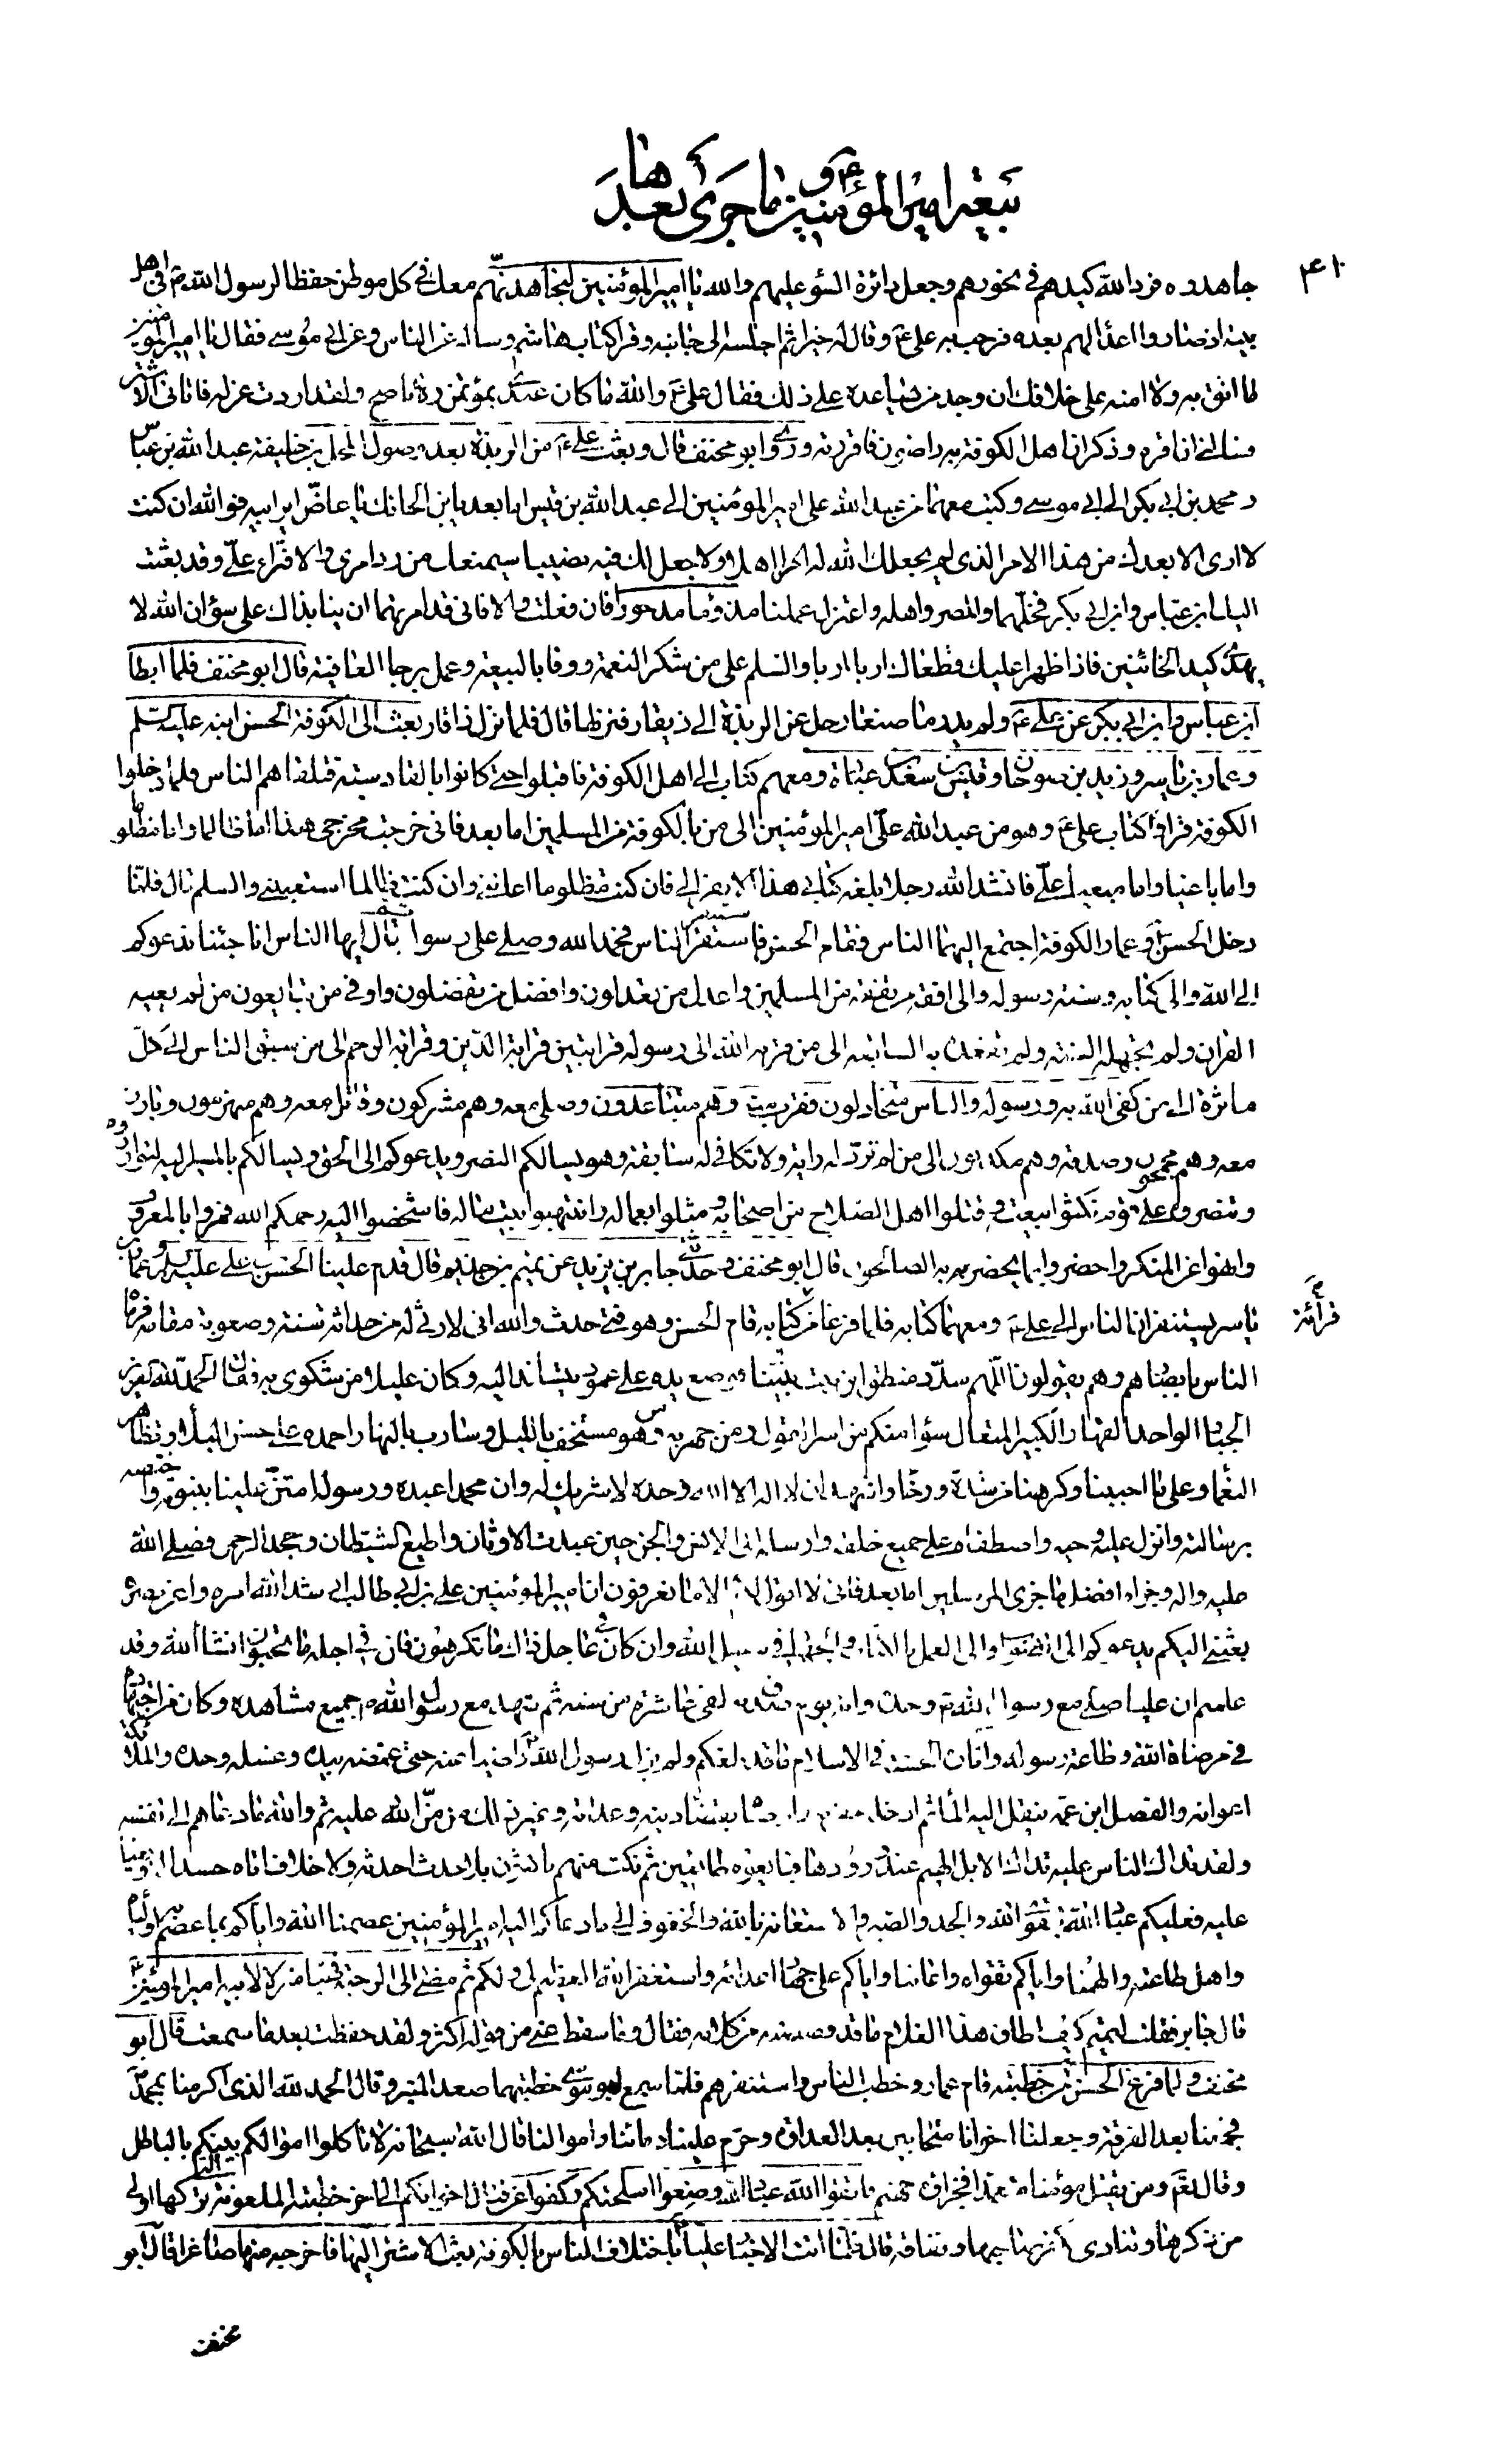 بيعة امير المؤمنين ع و ما جرى بعدها
٤١٠
جاهدوه فرد الله كيدهم فى نحورهم وجعل دائرة السوء عليهم والله يا امير المؤمنين لنجاهدنهم معك فى كل موطن حفظا لرسول الله ص فى اهل
بيته اذ صاروا اعداء لهم بعده فرحب به على ع وقال له خيرا ثم اجلسه الى جانبه وقرا كتاب هاشم وساله عن الناس وعن ابى موسى فقال يا امير المؤمنين
ما اثق به ولا امنه على خلافك ان وجد من يساعده على ذلك فقال على ع والله ما كان عندى بمؤتمن ولا ناصح ولقد اردت عزله فاتانى الاشتر
فسالنى ان اقره وذكر ان اهل الكوفة به راضون فاقررته وروى ابو مخنف قال وبعث على ع من الربذة بعد وصول المحل بن خليفة عبد الله بن عباس
و محمد بن ابى بكر الى ابى موسى وكتب معهما من عبد الله على امير المؤمنين الى عبد الله بن قيس اما بعد يا بن الحائك يا عاض اير ابيه فوالله ان كنت
لا ارى الا بعدك من هذا الامر الذى لم يجعلك الله له اهلا ولا جعل لك فيه نصيبا سيمنعك من رد امرى والافتراء على وقد بعثت
اليك ابن عباس وابن ابى بكر فخلهما والمصر واهله واعتزل عملنا مذؤما مدحورا فان فعلت والا فانى قد امرتهما ان ينابذاك على سواء ان الله لا
يهدى كيد الخائنين فاذا ظهرا عليك قطعاك اربا اربا والسلم على من شكر النعمة ووفا بالبيعة وعمل برجا العافية قال ابو مخنف فلما ابطا
ابن عباس وابن ابى بكر عن على ع ولم يدر ما صنعا رحل عن الربذة الى ذيقار فنزلها قال فلما نزل ذا قار بعث الى الكوفة الحسن ابنه عليه السلم
وعمار بن ياسر وزيد بن صوحان وقيس بن سعد بن عبادة ومعهم كتاب الى اهل الكوفة فاقبلوا حتى كانوا بالقادسية فتلقاهم الناس فلما دخلوا
الكوفة قراوا كتاب على ع وهو من عبد الله على امير المؤمنين الى من بالكوفة من المسلمين اما بعد فانى خرجت مخرجى هذا اما ظالما واما مظلوما
واما باغيا واما مبغيا على فانشد الله رجلا بلغه كتابى هذا الا نفر الى فان كنت مظلوما اعاننى وان كنت ظالما استعتبنى والسلم قال فلما
دخل الحسن ع وعمار الكوفة اجتمع اليهما الناس فقام الحسن فاستنفر الناس فحمد الله وصلى على رسوله ثم قال ايها الناس انا جئنا ندعوكم
الى الله والى كتابه وسنة رسوله والى افقه من تفقه من المسلمين واعدل من تعدلون وافضل من تفضلون واوفى من تبايعون من لم يعيه
القران ولم تجهله السنة ولم تقعد به السابقة الى من قربه الله الى رسوله قرابتين قرابة الدين وقرابة الرحم الى من سبق الناس الى كل
ماثرة الى من كفى الله به ورسوله والناس متخاذلون فقرب منه وهم متباعدون وصلى معه وهم مشركون وقاتل معه وهم منهزمون وبارز
معه وهم محجمون وصدقه وهم مكذبون الى من لم ترد له راية ولا تكافى له سابقة وهو يسالكم النصر ويدعوكم الى الحق ويسالكم بالمسير اليه لتوازروه
وتنصروه على قوم نكثوا بيعته وقتلوا اهل الصلاح من اصحابه ومثلوا بعماله وانتهبوا بيت ماله فاشخصوا اليه رحمكم الله فمروا بالمعروف
وانهوا عن المنكر واحضروا بما يحضر به الصالحون قال ابو مخنف وحدثنى جابر بن يزيد عن تميم بن حذيم قال قدم علينا الحسن بن على عليه السلم وعمار بن
ياسر يستنفران الناس الى على ع ومعهما كتابه فلما فرغا من قراءة كتابه قام الحسن وهو فتى حدث والله انى لارثى له من حداثة سنه وصعوبة مقامه فرماه
الناس بابصارهم وهم يقولون اللهم سدد منطق ابن بنت نبينا فوضع يده على عمود يتساند اليه وكان عليلا من شكوى به فقال الحمد لله العزيز
الجبار الواحد القهار الكبير المتعال سواء منكم من اسر القول ومن جهر به ومن هو مستخف بالليل وسارب بالنهار احمده على حسن البلاء وتظاهر
النعماء وعلى ما احببنا وكرهنا من شدة ورخاء واشهد ان لا اله الا الله وحده لا شريك له وان محمدا عبده ورسوله امتن علينا بنبوته واختصه
برسالته وانزل عليه وحيه واصطفاه على جميع خلقه وارسله الى الانس والجن حين عبدت الاوثان واطيع الشيطان وجحد الرحمن فصلى الله
عليه واله وجزاه افضل ما جزى المرسلين اما بعد فانى لا اقول لكم الا ما تعرفون ان امير المؤمنين على بن ابى طالب ارشد الله امره واعز نصره
بعثنى اليكم يدعوكم الى الصواب والى العمل بالكتاب والجهاد فى سبيل الله وان كان فى عاجل ذاك ما تكرهون فان فى اجله ما تحبون انشا الله وقد
علمتم ان عليا صلى مع رسول الله ص وحده وانه يوم صدق به لفى عاشرة من سنه ثم شهد مع رسول الله ص جميع مشاهده وكان من اجتهاده
فى مرضاة الله وطاعة رسوله واثاره الحسنة فى الاسلام ما قد بلغكم ولم يزل رسول الله ص راضيا عنه حتى غمضه بيده وغسله وحده والملائكة
اعوانه والفضل ابن عمه ينقل اليه الماء ثم ادخله حفرته واوصاه بقضاء دينه وعداته وغير ذلك من من الله عليه ثم والله ما دعاهم الى نفسه
ولقد تداك الناس عليه تداك الابل الهيم عند ورودها فبايعوه طائعين ثم نكث منهم ناكثون بلا حدث احدثه ولا خلاف اتاه حسدا له وبغيا
عليه فعليكم عباد الله بتقوى الله والجد والصبر والاستعانة بالله والخفوف الى ما دعاكم اليه امير المؤمنين عصمنا الله واياكم بما عصم به اولياءه
واهل طاعته والهمنا واياكم تقواه واعاننا واياكم على جهاد اعدائه واستغفر الله العظيم لى ولكم ثم مضى الى الرحبة فهيا منزلا لابيه امير المؤمنين ع
قال جابر فقلت لتميم كيف اطاق هذا الغلام ما قد قصصته من كلامه فقال وما سقط عنى من قوله اكثر ولقد حفظت بعض ما سمعت قال ابو
مخنف ولما فرغ الحسن ع من خطبته قام عمار وخطب الناس واستنفرهم فلما سمع ابو موسى خطبتهما صعد المنبر وقال الحمد لله الذى اكرمنا بمحمد ص
فجمعنا بعد الفرقة وجعلنا اخوانا متحابين بعد العداوة وحرم علينا دمائنا واموالنا قال الله سبحانه لا تاكلوا اموالكم بينكم بالباطل
وقال تعم ومن يقتل مؤمنا متعمدا فجزاؤه جهنم فاتقوا الله عباد الله وضعوا اسلحتكم وكفوا عن قتال اخوانكم الى اخر خطبته الملعونة التى تركها اولى
من ذكرها وتنادى بكفر صاحبها ونفاقه قال فلما اتت الاخبار عليا ع باختلاف الناس بالكوفة بعث الاشتر اليها فاخرجه منها صاغرا قال ابو
مخنف
قرائة